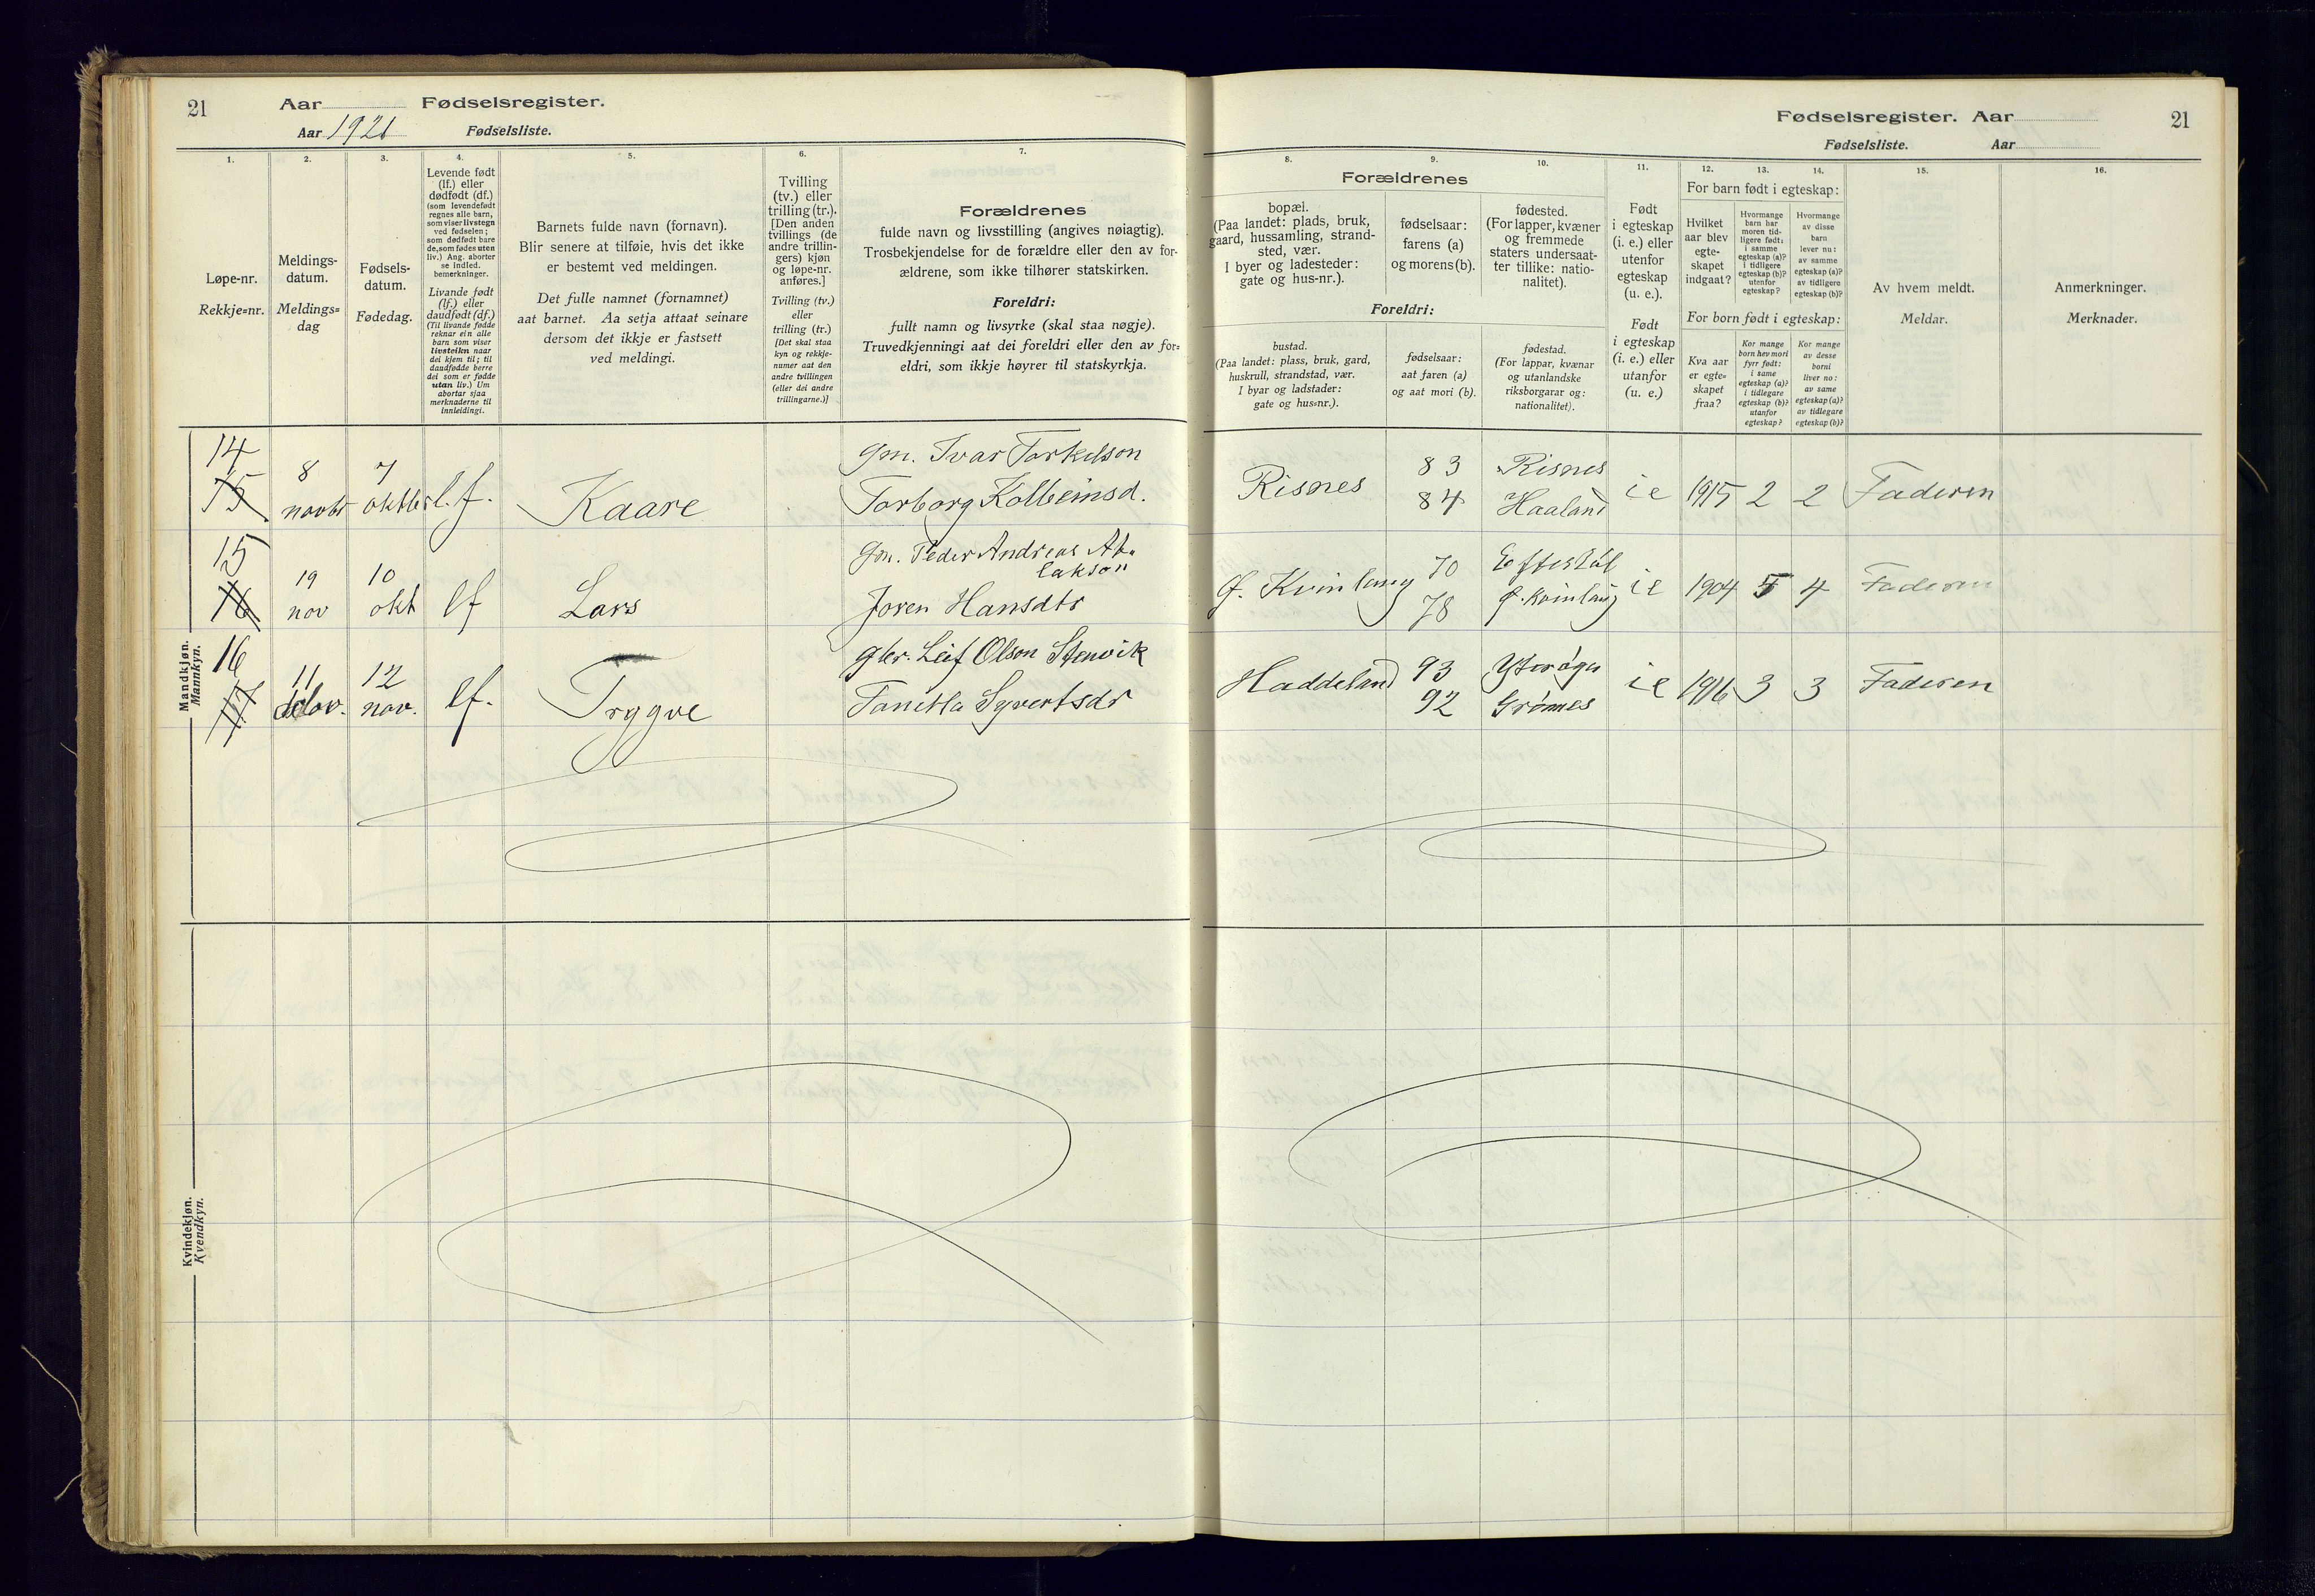 21
Aar Fødselsregister.
Aar 1921 Fødselsliste.
1.
2.
3.
4.
5.
6.
7.
Løpe-nr.
Rekkje=nr.
Meldings-
datum.
Meldings=
dag
Fødsels-
datum.
Fødedag.
Levende født
(lf.) eller
dødfødt (df.)
(som levendefødt
regnes alle barn,
som viser livstegn
ved fødselen;
som dødfødt bare
de, som fødes uten
liv.) Ang. aborter
se indled.
bemerkninger.
Livande født
(lf.) eller
daudfødt (df.)
(Til livande fødde
reknar ein alle
barn som viser
livsteikn naar
dei kjem til; til
daudfødde berre
dei som er fødde
utan liv.) Um
abortar sjaa
merknaderne til
innleidingi.
Barnets fulde navn (fornavn).
Blir senere at tilføie, hvis det ikke
er bestemt ved meldingen.
Det fulle namnet (fornamnet)
aat barnet. Aa setja attaat seinare
dersom det ikkje er fastsett
ved meldingi.
Tvilling
(tv.) eller
trilling (tr.).
[Den anden
tvillings (de
andre trillin-
gers) kjøn
og løpe-nr.
anføres.]
Tvilling (tv.)
eller
trilling (tr.)
[Det skal staa
kyn og rekkje-
numer aat den
andre tvillingen
(eller dei andre
trillingarne.)]
Forældrenes
fulde navn og livsstilling (angives nøiagtig).
Trosbekjendelse for de forældre eller den av for-
ældrene, som ikke tilhører statskirken.
Foreldri:
fullt namn og livsyrke (skal staa nøgje).
Truvedkjenningi aat dei foreldri eller den av for=
eldri, som ikkje høyrer til statskyrkja.
Mandkjøn.
Mannkyn.
14
15
8
novbr
7
oktbr
l.f.
Kaare
gm. Ivar Torkelson
Torborg Kolbeinsd.
15
16
19
nov
10
okt
lf
Lars
gm. Peder Andreas At-
lakson
Joren Hansdtr
16
17
11
12
nov.
lf.
Trygve
gbr. Leif Olson Stenvik
Syvertsdr
Kvindekjøn.
Kvendkyn.
Fødselsregister. Aar 21
Fødselsliste. Aar
8.
9.
10.
11.
12.
13.
14.
15.
16.
Forældrenes
bopæl.
(Paa landet: plads, bruk,
gaard, hussamling, strand-
sted, vær.
I byer og ladesteder:
gate og hus-nr.).
fødselsaar:
farens (a)
og morens (b).
fødested.
(For lapper, kvæner
og fremmede
staters undersaat-
ter tillike: natio-
nalitet).
Foreldri:
bustad.
(Paa landet: plass, bruk, gard,
huskrull, strandstad, vær.
I byar og ladstader:
gate og hus=nr.).
fødselsaar:
aat faren (a)
og aat mori (b).
fødestad.
(For lappar, kvænar
og utanlandske
riksborgarar og:
nationalitet).
Født
i egteskap
(i. e.) eller
utenfor
egteskap
(u. e.).
Født
i egteskap
(i. e.) eller
utanfor
(u. e.)
For barn født i egteskap:
Hvilket
aar blev
egte-
skapet
indgaat?
Hvormange
barn har
moren tid-
ligere født:
i samme
egteskap (a)?
i tidligere
egteskap (b)?
utenfor
egteskap?
Hvormange
av disse
barn
lever nu:
av samme
egteskap (a)?
av tidligere
egteskap (b)?
For born født i egteskap:
Kva aar
er egte-
skapet
fraa?
Kor mange
born hev mori
fyrr født:
i same
egteskap (a)?
i tidlegare
egteskap (b)?
utanfor
egteskap?
Kor mange
av desse
borni
liver no:
av same
egteskap (a)?
av tidlegare
egteskap (b)?
Av hvem meldt.
Meldar.
Anmerkninger.
Merknader.
Risnes
83
84
Risnes
Haaland
i e
1915
2
2
Faderen
Ø. Kvinlaug
70
78
Eftestøl
Ø. Kvinlaug
i e
1904
5
4
Faderen
Haddeland
93
92
Ytterøy
i e
1916
3
3
Faderen